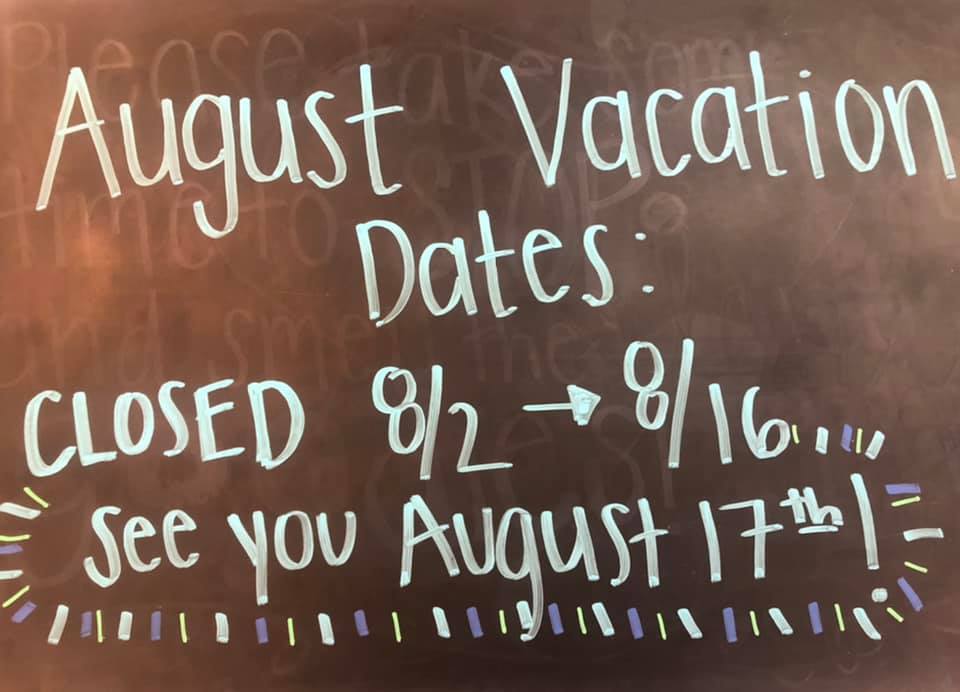 August Vacation
Dates:
CLOSED 8/2 → 8/16...
See you August 17th!